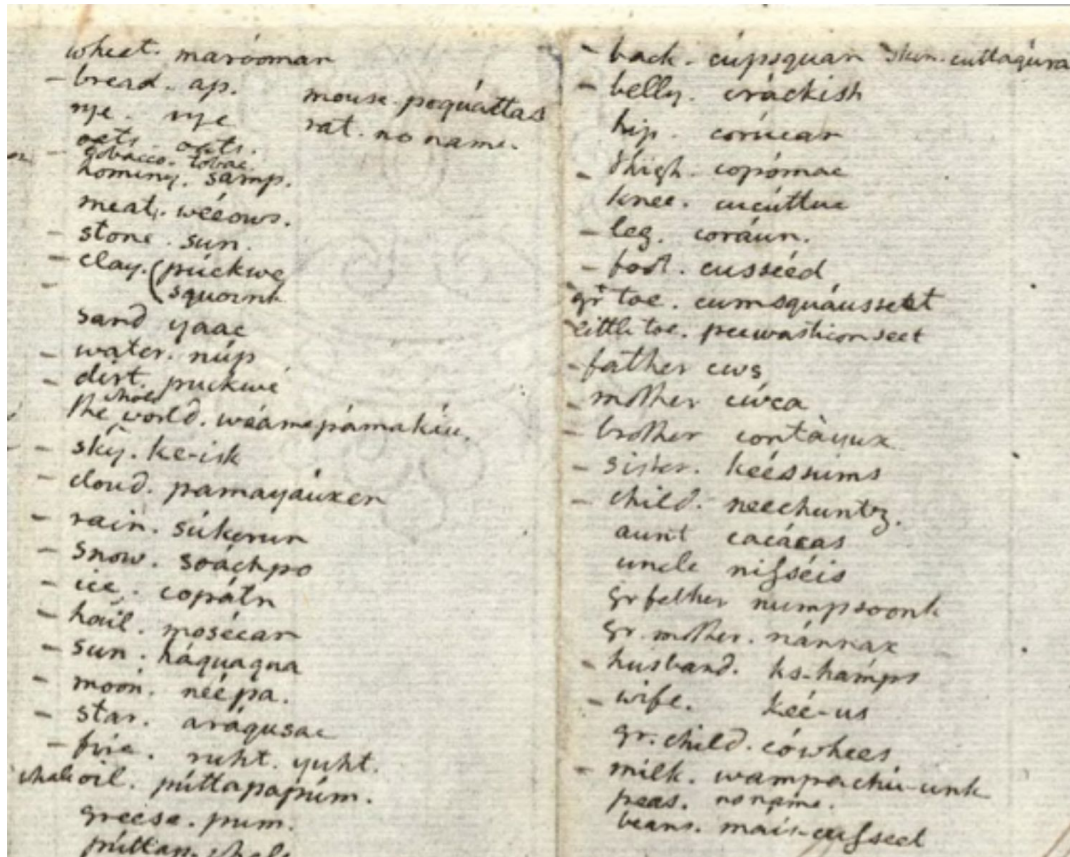 wheat. maróoman
– bread. ap.
mouse. poquáttas
rye. rye
rat. no name.
oats. oats.
tobacco. tobac.
– hominy. samp.
meat. wéeows.
– stone. sun.
– clay. (púckwe
– (squoint
sand yaac
– water. núp
– dirt. puckwé
whole
the world. wéamepámakíu.
– sky. ke-isk
– cloud. pamayáuxen
– rain. súkerun
– snow. soáchpo
– ice. copátn
– hail. mosécan
– sun. háquaqua
– moon. neépa.
– star. aráqusac
– fire. ruht. yuht.
whale oil. púttapapúm.
greese. pum.
púttap. whale
– back. cúpsquan skin. cuttaqúra
– belly. cráckish
hip. corúcan
thigh. copómac
knee. cucúttuc
– leg. coráun.
– foot. cusséed
gr toe. cumsquáusseet
little toe. peewasticonseet
– father cws
– mother cwca
– brother contàyux
– sister. keéssums
– child. neechuntz.
aunt cacácas
uncle nisséis
gr father numpsoonk
gr. mother. nánnax
– husband. ks-hamps
– wife. kée-us
gr. child. cówhees
– milk. wampachú-unk
peas. no name.
beans. mais-cusseet